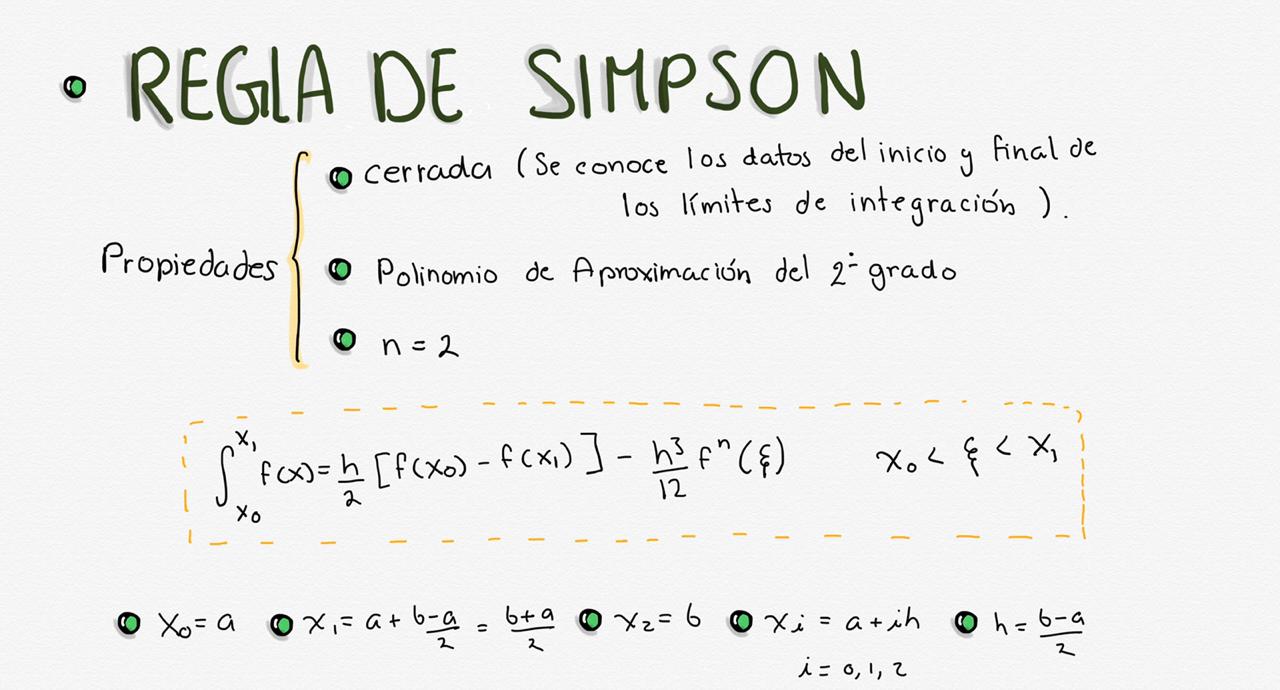 • REGLA DE SIMPSON
Propiedades {
• cerrada (Se conoce los datos del inicio y final de
los límites de integración ).
• Polinomio de Aproximación del 2° grado
• n = 2
∫_{x₀}^{x₁} f(x) = h/2 [f(x₀) - f(x₁)] - h³/12 fⁿ(ξ)    x₀ < ξ < x₁
• x₀ = a • x₁ = a + b-a/2 = b+a/2 • x₂ = b • xi = a + ih • h = b-a/2
i = 0, 1, 2